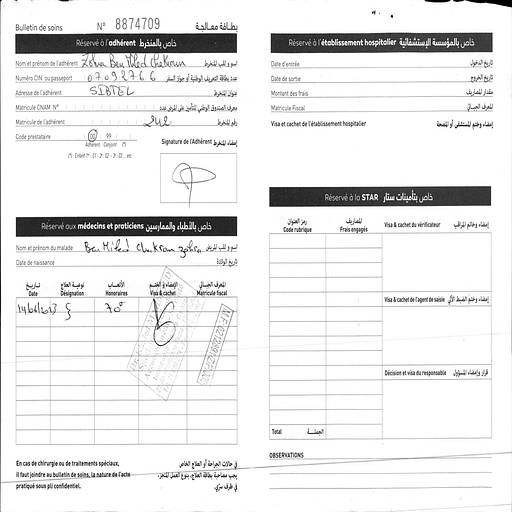 Bulletin de soins N° 8874709 بطاقة معالجة
Réservé à l'adhérent خاص بالمنخرط
Nom et prénom de l'adhérent Zohra Ben Miled Chekroun اسم و لقب المنخرط
Numéro CIN ou passeport 07092766 عدد بطاقة التعريف الوطنية أو جواز السفر
Adresse de l'adhérent SIBTEL عنوان المنخرط
Matricule CNAM N° معرف الصندوق الوطني للتأمين على المرض عدد
Matricule de l'adhérent 242 رقم المنخرط
Code prestataire 00 99 Signature de l'Adhérent إمضاء المنخرط
Adhérent Conjoint (*)
(*) : Enfant 1er : 01 - 2 : 02 - 3 : 03 ... etc
Réservé aux médecins et praticiens خاص بالأطباء والممارسين
Nom et prénom du malade Ben Miled Chekroun Zohra اسم و لقب المريض
Date de naissance تاريخ الولادة
تاريخ نوعية العلاج الأتعاب الإمضاء و الختم المعرف الجبائي
Date Désignation Honoraires Visa & cachet Matricule fiscal
70
En cas de chirurgie ou de traitements spéciaux,
il faut joindre au bulletin de soins, la nature de l'acte
pratiqué sous pli confidentiel.
في حالات الجراحة أو العلاج الخاص
يجب مصاحبة بطاقة العلاج، بنوع العمل المنجز،
في ظرف سري.
Réservé à l'établissement hospitalier خاص بالمؤسسة الإستشفائية
Date d'entrée تاريخ الدخول
Date de sortie تاريخ الخروج
Montant des frais مقدار المصاريف
Matricule Fiscal المعرف الجبائي
Visa et cachet de l'établissement hospitalier إمضاء وختم المستشفى أو المصحة
Réservé à la STAR خاص بتأمينات ستار
رمز العنوان المصاريف
Code rubrique Frais engagés Visa & cachet du vérificateur إمضاء وخاتم المراقب
Visa & cachet de l'agent de saisie إمضاء وختم الضبط الآلي
Décision et visa du responsable قرار وإمضاء المسؤول
Total الجملة
OBSERVATIONS